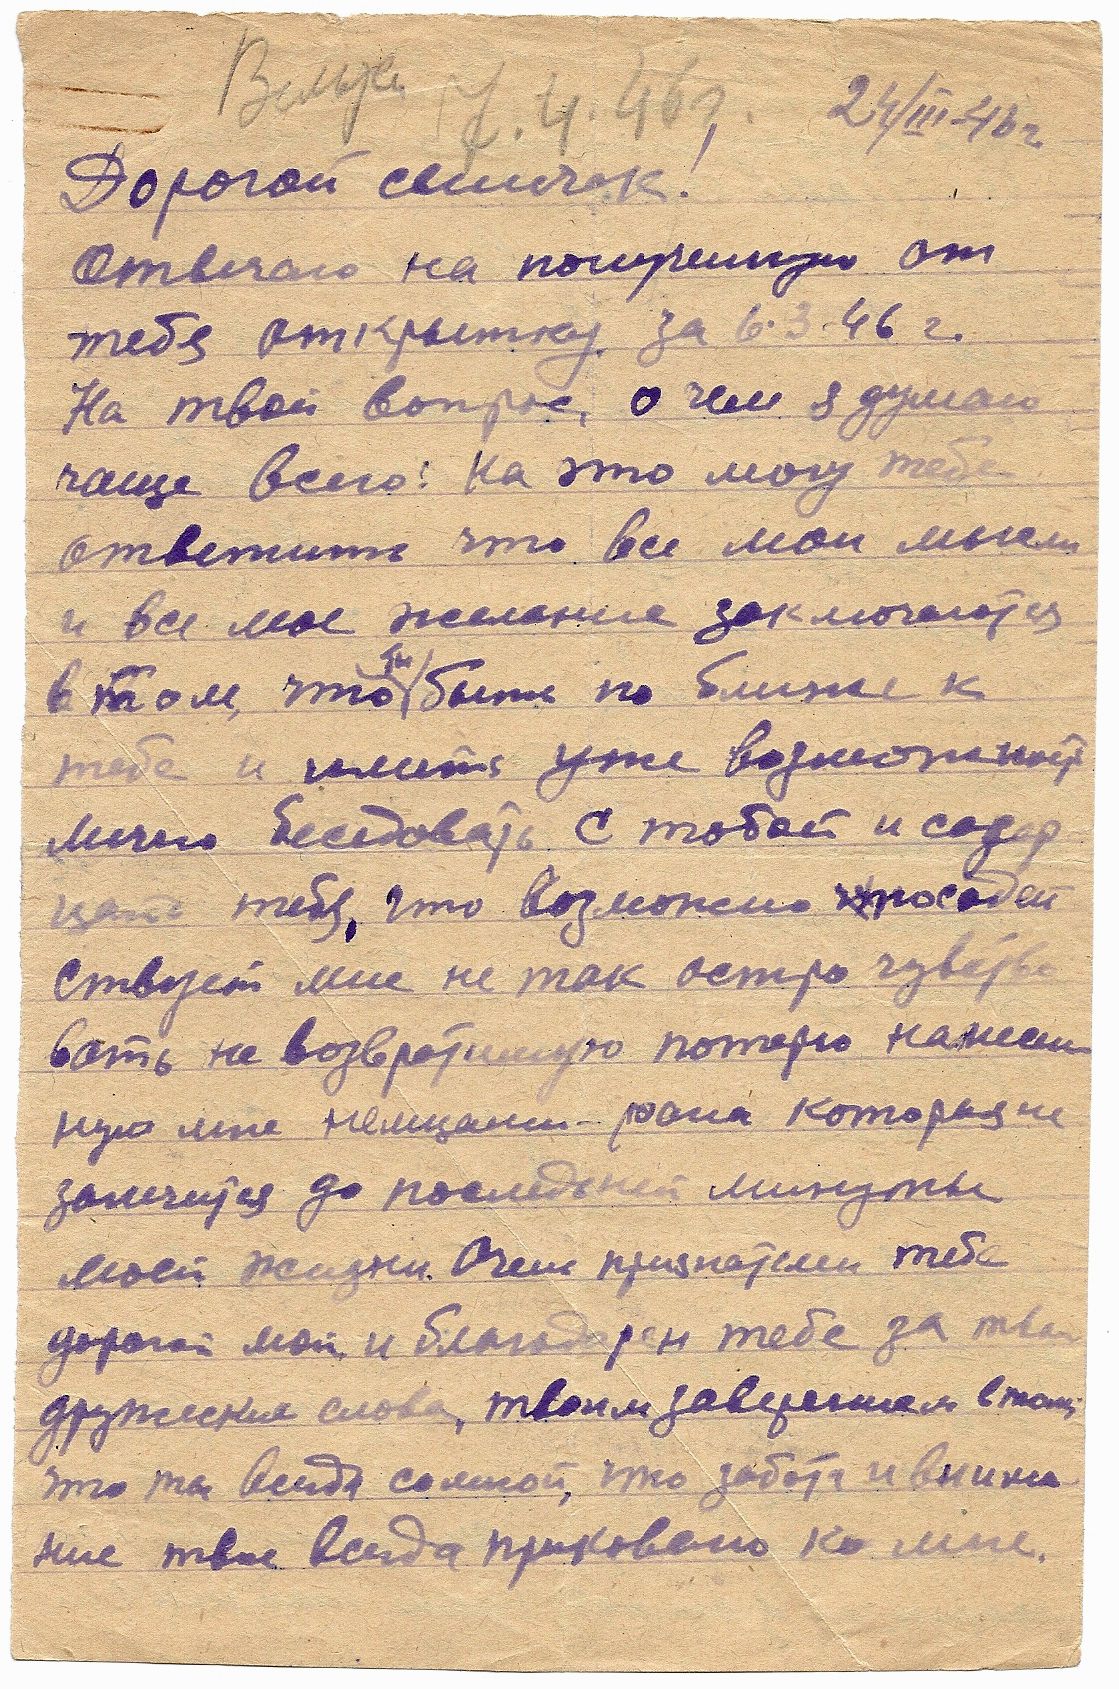 7.4.46 г.
24/III-46 г.
Дорогой сыночек!
Отвечаю на полученную от
тебя открытку за 6.3-46 г.
На твой вопрос, о чем я думаю
чаще всего: На это могу тебе
ответить что все мои мысли
и все мое желание заключается
в том, что бы быть по ближе к
тебе и иметь уже возможность
лично беседовать с тобой и созер
цать тебя, что возможно посодей
ствует мне не так остро чувство
вать не возвратимую потерю нанесен
ную мне немцами - рана которая не
залечится до последней минуты
моей жизни. Очень признателен тебе
дорогой мой и благодарен тебе за твои
дружеские слова, твоим заверением в том,
что ты всегда со мной, что забота и внима
ние твое всегда приковано ко мне.